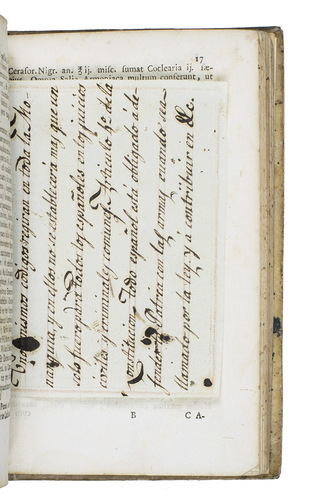 17
Cerasor. Nigr. an. ℥ ij. misc. sumat Coclearia ij. sæ-
Salia Armoniaca multum conferunt, ut
Unos mismos codigos regiran en toda la Mo-
narquia, y en ellos no se establecerá mas que un
solo fuero para todos los españoles en los juicios
civiles criminales y comunes. Articulo 6º de la
Constitucion. Todo español está obligado á de-
fender la Patria con las armas cuando sea
llamado por la ley, y á contribuir en &c.
B C A-